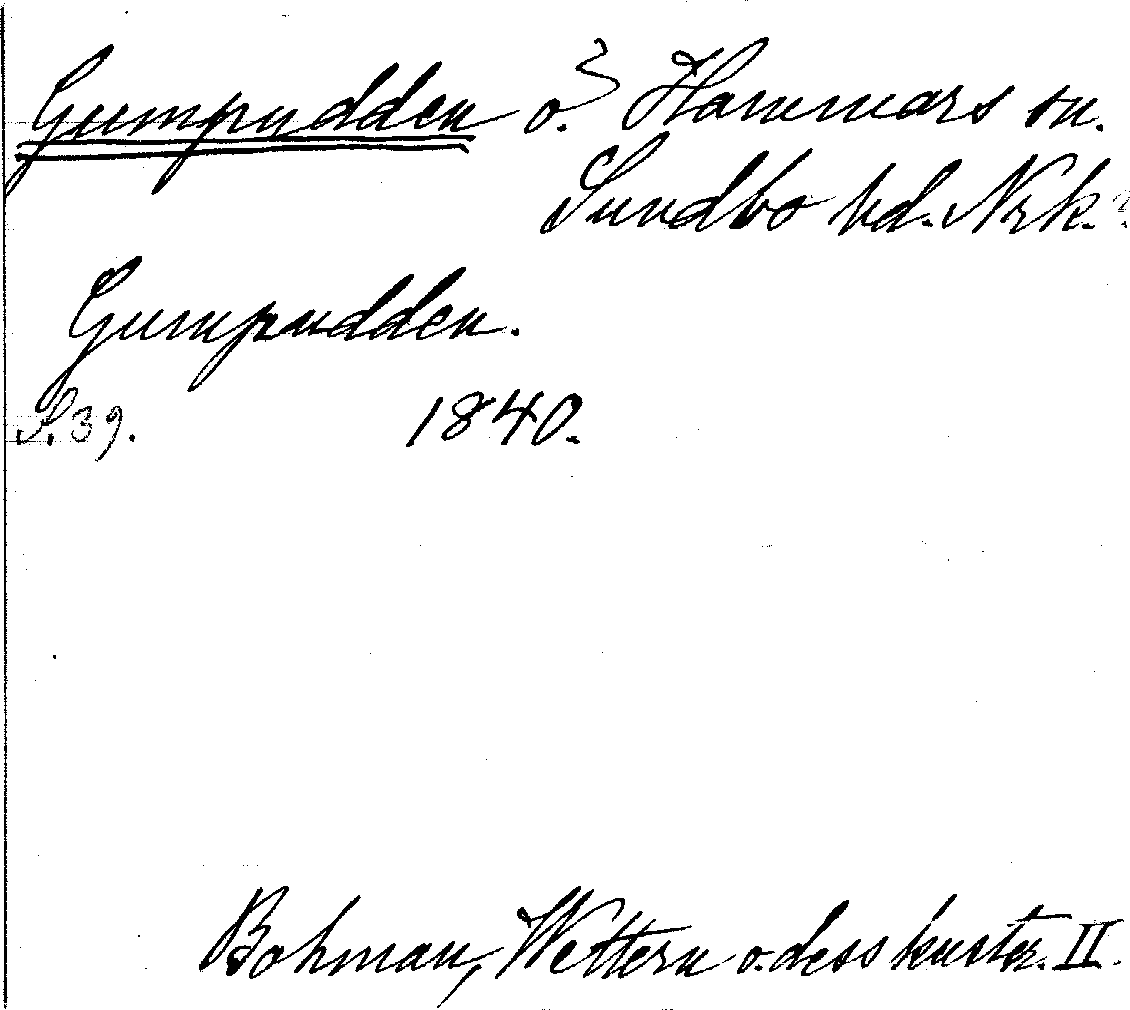 Gumpudden o. Hammars sn.
Sundbo hd. Nrk.
Gumpudden.
S. 39. 1840.
Bohman, Wettern o. dess kuster. II.